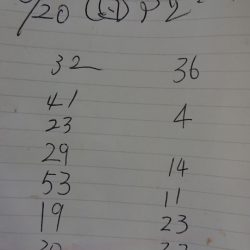 /20 P2
32 36
41 4
23
29 14
53 11
19 23